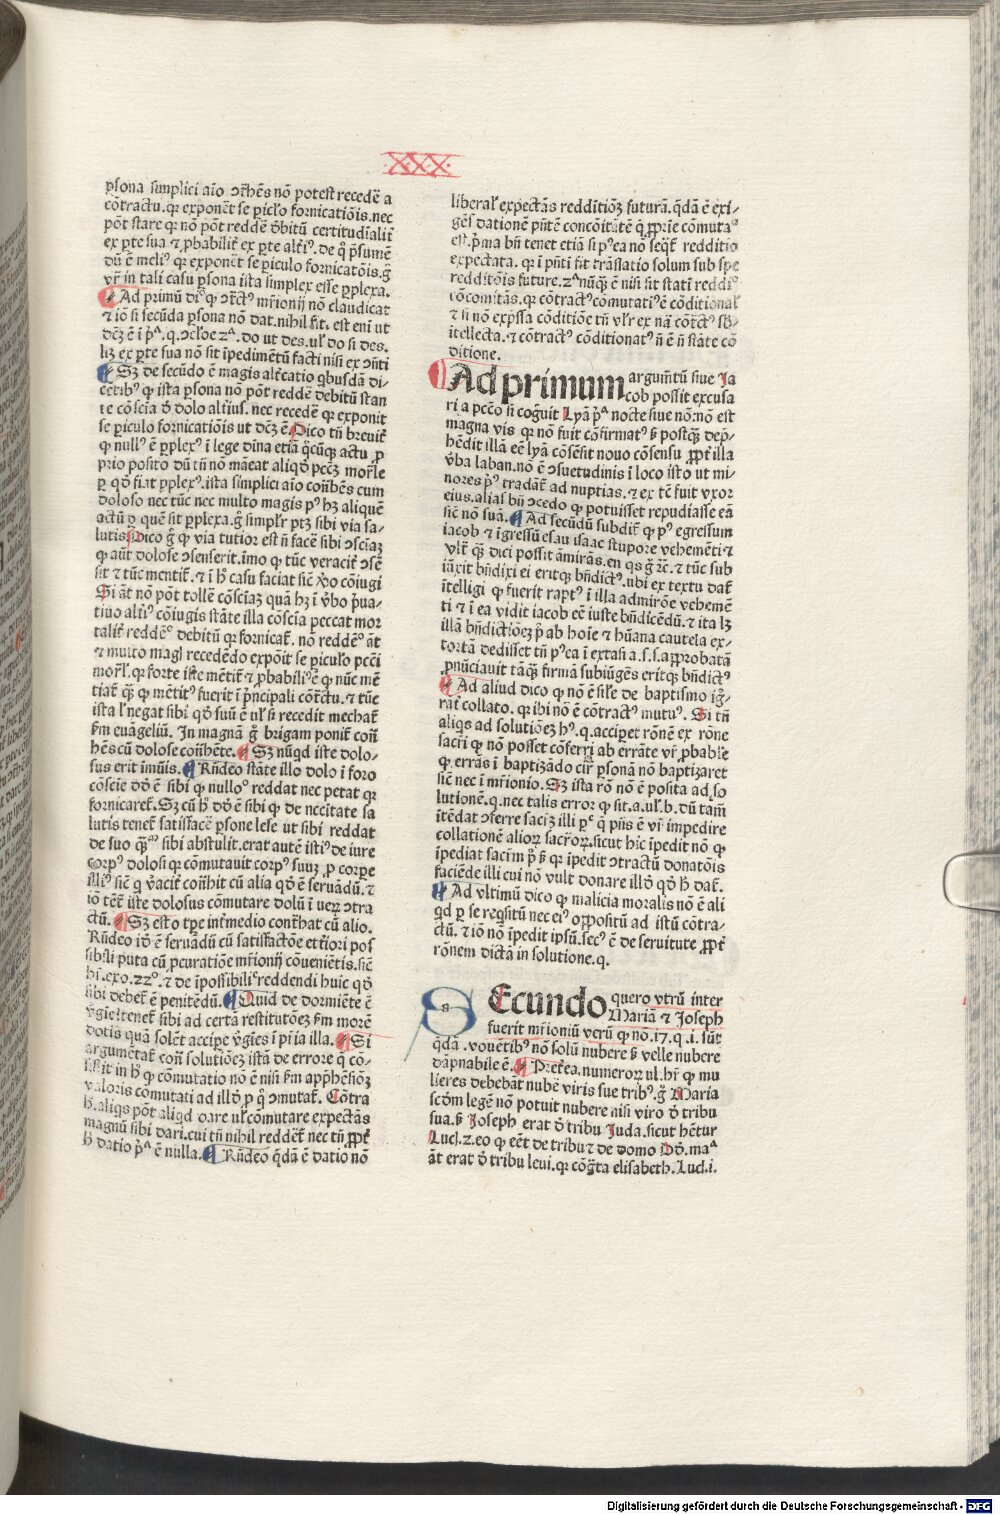 XXX
ꝑsona simplici aīo ↄtrhēs nō potest recedē a
cōtractu. qꝛ exponēt se piclo fornicatiōis. nec
pōt stare qꝛ nō pōt reddē ꝺbitū certitudīalit̄
ex ꝑte sua ⁊ ꝓbabilit̄ ex ꝑte alt̄iꝰ. de q̊ p̄sumē
dū ē meliꝰ qꝛ exponēt se ꝑiculo fornicatōis. g̊
vr̄ in tali casu ꝑsona ista simplex esse ꝑplexa.
Ad primū dr̄ ꝙ ↄtr̄ctꝰ mr̄ionij nō claudicat
⁊ iō si secūda ꝑsona nō dat. nihil fit. est eni ut
dcz̄ ē ī pͣ. q. ↄclōe 2ͣ. do ut des. ul' do si des.
lz ex ꝑte sua nō sit īpedimētū facti nisi ex ↄn̄ti
Sz de secūdo ē magis alt̄catio qbusdā di
cētibꝰ ꝙ ista ꝑsona nō pōt reddē debitū stan
te cōsciā ꝺ dolo altīus. nec recedē qꝛ exponit
se ꝑiculo fornicatiōis ut dcz̄ ē Dico tn̄ breuit̄
ꝙ nullꝰ ē ꝑplexꝰ ī lege dīna etiā q̄cūqꝫ actu ꝓ
prio posito dū tn̄ nō māeat aliqd̊ pcc̄z mor̄le
ꝑ qd̊ fiat ꝑplexꝰ. ista simplici aīo con̄hēs cum
doloso nec tūc nec multo magis pꝰ hz aliquē
actū ꝑ quē sit ꝑplexa. g̊ simplr̄ ptz sibi via sa-
lutis. Dico g̊ ꝙ via tutior est n̄ facē sibi ↄsciāz
ꝙ aūt dolose ↄsenserit. īmo ꝙ tūc veracit̄ ↄsē
sit ⁊ tūc mentit̄. ⁊ ī h̊ casu faciat sic̄ v̊o cōiugi
Si āt nō pōt tollē cōsciaz quā hz ī v̊bo p̄ua-
tiuo alt̄iꝰ cōiugis stāte illa cōscia peccat mor
talit̄ reddēꝰ debitū qꝛ fornicat̄. nō reddēꝰ āt
⁊ multo magī recedēdo expōit se ꝑiculo pcc̄i
mor̄l. qꝛ forte iste mētit̄ ⁊ ꝓbabiliꝰ ē ꝙ nūc mē
tiat̄ q̄ꝫ ꝙ mētitꝰ fuerit ī p̄ncipali cōtr̄ctu. ⁊ tūc
ista l' negat sibi qd̊ suū ē ul' si recedit mechat̄
s̄m euāgeliū. In magnā g̊ brigam ponit̄ con̄
hēs cū dolose con̄hēte. Sz nūqd iste dolo-
sus erit īmūis. Rn̄deo stāte illo dolo ī foro
cōscie ꝺꝺ ē sibi ꝙ nulloꝰ reddat nec petat qꝛ
fornicaret̄. Sz cū h̊ ꝺꝺ ē sibi ꝙ de nccitate sa
lutis tenet̄ satisfacē ꝑsone lese ut sibi reddat
de suo q̄ꝫ sibi abstulit. erat autē istiꝰ de iure
corpꝰ dolosi qꝛ cōmutauit corpꝰ suuꝫ ꝓ corpe
illiꝰ sic̄ q v̊acit̄ con̄hit cū alia qd̊ ē seruādū. ⁊
iō tēt̄ iste dolosus cōmutare dolū ī veꝝ ↄtra
ctū. Sz esto tꝑe int̄medio contr̄hat cū alio.
Rn̄deo id̄ ē seruādū cū satisfactōe et̄iori pos
sibili puta cū ꝓcuratiōe mr̄ionij cōueniētis. sic̄
hr̄. exo. 22ꝰ. ⁊ de īpossibili reddendi huic qd̊
sibi debet̄ ē penitēdū. Quid de dormiēte ē
v̊gie tenet̄ sibi ad certā restitutōez s̄m morē
dotis quā solēt accipe v̊gies ī pr̄ia illa. Si
argumētat̄ con̄ solutiōez istā de errore q̄ cō-
sistit in h̊ ꝙ cōmutatio nō ē nisi s̄m apphēsiōz
valoris comutati ad illd̊ ꝓ q̊ ↄmutat̄. Cōtra
h̊. aliqs pōt aliqd dare ul' cōmutare expectās
magnū sibi dari. cui tn̄ nihil reddēt̄ nec tn̄ ꝓpt̄
h̊ datio pͣ ē nulla. Rn̄deo q̄dā ē datio nō
liberal' expectās redditiōz futurā. q̄dā ē exi-
gēs dationē pn̄tē concōitātē q̄ ꝓprie cōmutaͦ
est. p̄ma bn̄ tenet etiā si pꝰea nō seqt̄ redditio
expectata. qꝛ ī pn̄ti fit trāslatio solum sub spe
redditōis future. 2ͣ nūqꝫ ē nisi sit stati reddiͦ
cōcomitās. qꝛ cōtractꝰ comutatiꝰ ē cōditional'
⁊ si nō exp̄ssa cōditiōe tn̄ vl'r ex nā cōtr̄ctꝰ sb̄-
ītellecta. ⁊ cōtractꝰ cōditionatꝰ n̄ ē n̄ stāte cō
ditione.
Ad primum argum̄tū siue Ja
cob possit excusa
ri a pcc̄o si cog̊uit Lyā pͣ nocte siue nō: nō est
magna vis qꝛ nō fuit cōfirmatꝰ s̄ postq̄ꝫ dep̄-
hēdit illā eē lyā cōsēsit nouo cōsensu ꝓpt̄ illa
v̊ba laban. nō ē ↄsuetudinis ī loco isto ut mi-
nores pꝰ tradāt̄ ad nuptias. ⁊ ex tc̄ fuit vxor
eius. alias bn̄ ↄcedo ꝙ potuisset repudiasse eā
sic̄ nō suā. Ad secūdū subdit̄ ꝙ pꝰ egressum
iacob ⁊ īgressū esau isaac stupore vehemēti ⁊
vlt̄ q̄ꝫ dici possit āmirās. en qs g̊ ⁊c̄. ⁊ tūc sub
iūxit bn̄dixi ei eritqꝫ bn̄dictꝰ. ubi ex textu dat̄
ītelligi ꝙ fuerit raptꝰ ī illa admirōe vehemē
ti ⁊ ī ea vidit iacob eē iuste bn̄dicēdū. ⁊ ita lz
illā bn̄dictiōez pͥ ab hoīe ⁊ hūana cautela ex-
tortā dedisset tn̄ pꝰea ī extasi a. s. s. approbatā
pnūciauit tāq̄ꝫ firmā subiūgēs eritqꝫ bn̄dictꝰ
Ad aliud dico ꝙ nō ē sile de baptismo ig̊-
rāt̄ collato. qꝛ ibi nō ē cōtractꝰ mutuꝰ. Si tn̄
aliqs ad solutiōez hꝰ. q. acciꝑet rōnē ex rōne
sacri qꝛ nō posset cōferri ab errāte vr̄ ꝓbabile
ꝙ errās ī baptizādo cir̄ ꝑsonā nō baptizaret
sic̄ nec ī mr̄ionio. Sz ista rō nō ē posita ad so
lutionē. q. nec talis error ꝙ sit. a. ul'. b. dū tam̄
ītēdat ↄferre sac̄ꝫ illi pꝰ q̊ pn̄s ē vr̄ impedire
collationē alioꝝ sacr̄oꝝ. sicut hic īpedit nō ꝙ
īpediat sac̄m pͥ s̄ qꝛ īpedit ↄtractū donatōis
faciēde illi cui nō vult donare illd̊ qd̊ h̊ dat̄.
Ad vltimū dico ꝙ malicia moralis nō ē ali
qd ꝑ se reqsitū nec eiꝰ oppositū ad istū cōtra-
ctū. ⁊ iō nō īpedit ipsū. secꝰ ē de seruitute ꝓpt̄
rōnem dictā in solutione. q.
SEcundo quero vtrū inter
Mariā ⁊ Joseph
fuerit mr̄ioniū verū ꝙ nō. 17. q. i. sūt
q̄dā. vouētibꝰ nō solū nubere s̄ velle nubere
dāpnabile ē. Pret̄ea. numeroꝝ ul. hr̄ ꝙ mu
lieres debebāt nubē viris sue tribꝰ. g̊ Maria
scd̄m legē nō potuit nubere nisi viro ꝺ tribu
sua. s̄ Joseph erat ꝺ tribu Juda. sicut hētur
Lucī. 2. eo ꝙ eēt de tribu ⁊ de domo ꝺꝺ. maͣ
āt erat ꝺ tribu leui. qꝛ cōg̊ta elisabeth. Luc. i.
Digitalisierung gefördert durch die Deutsche Forschungsgemeinschaft - DFG